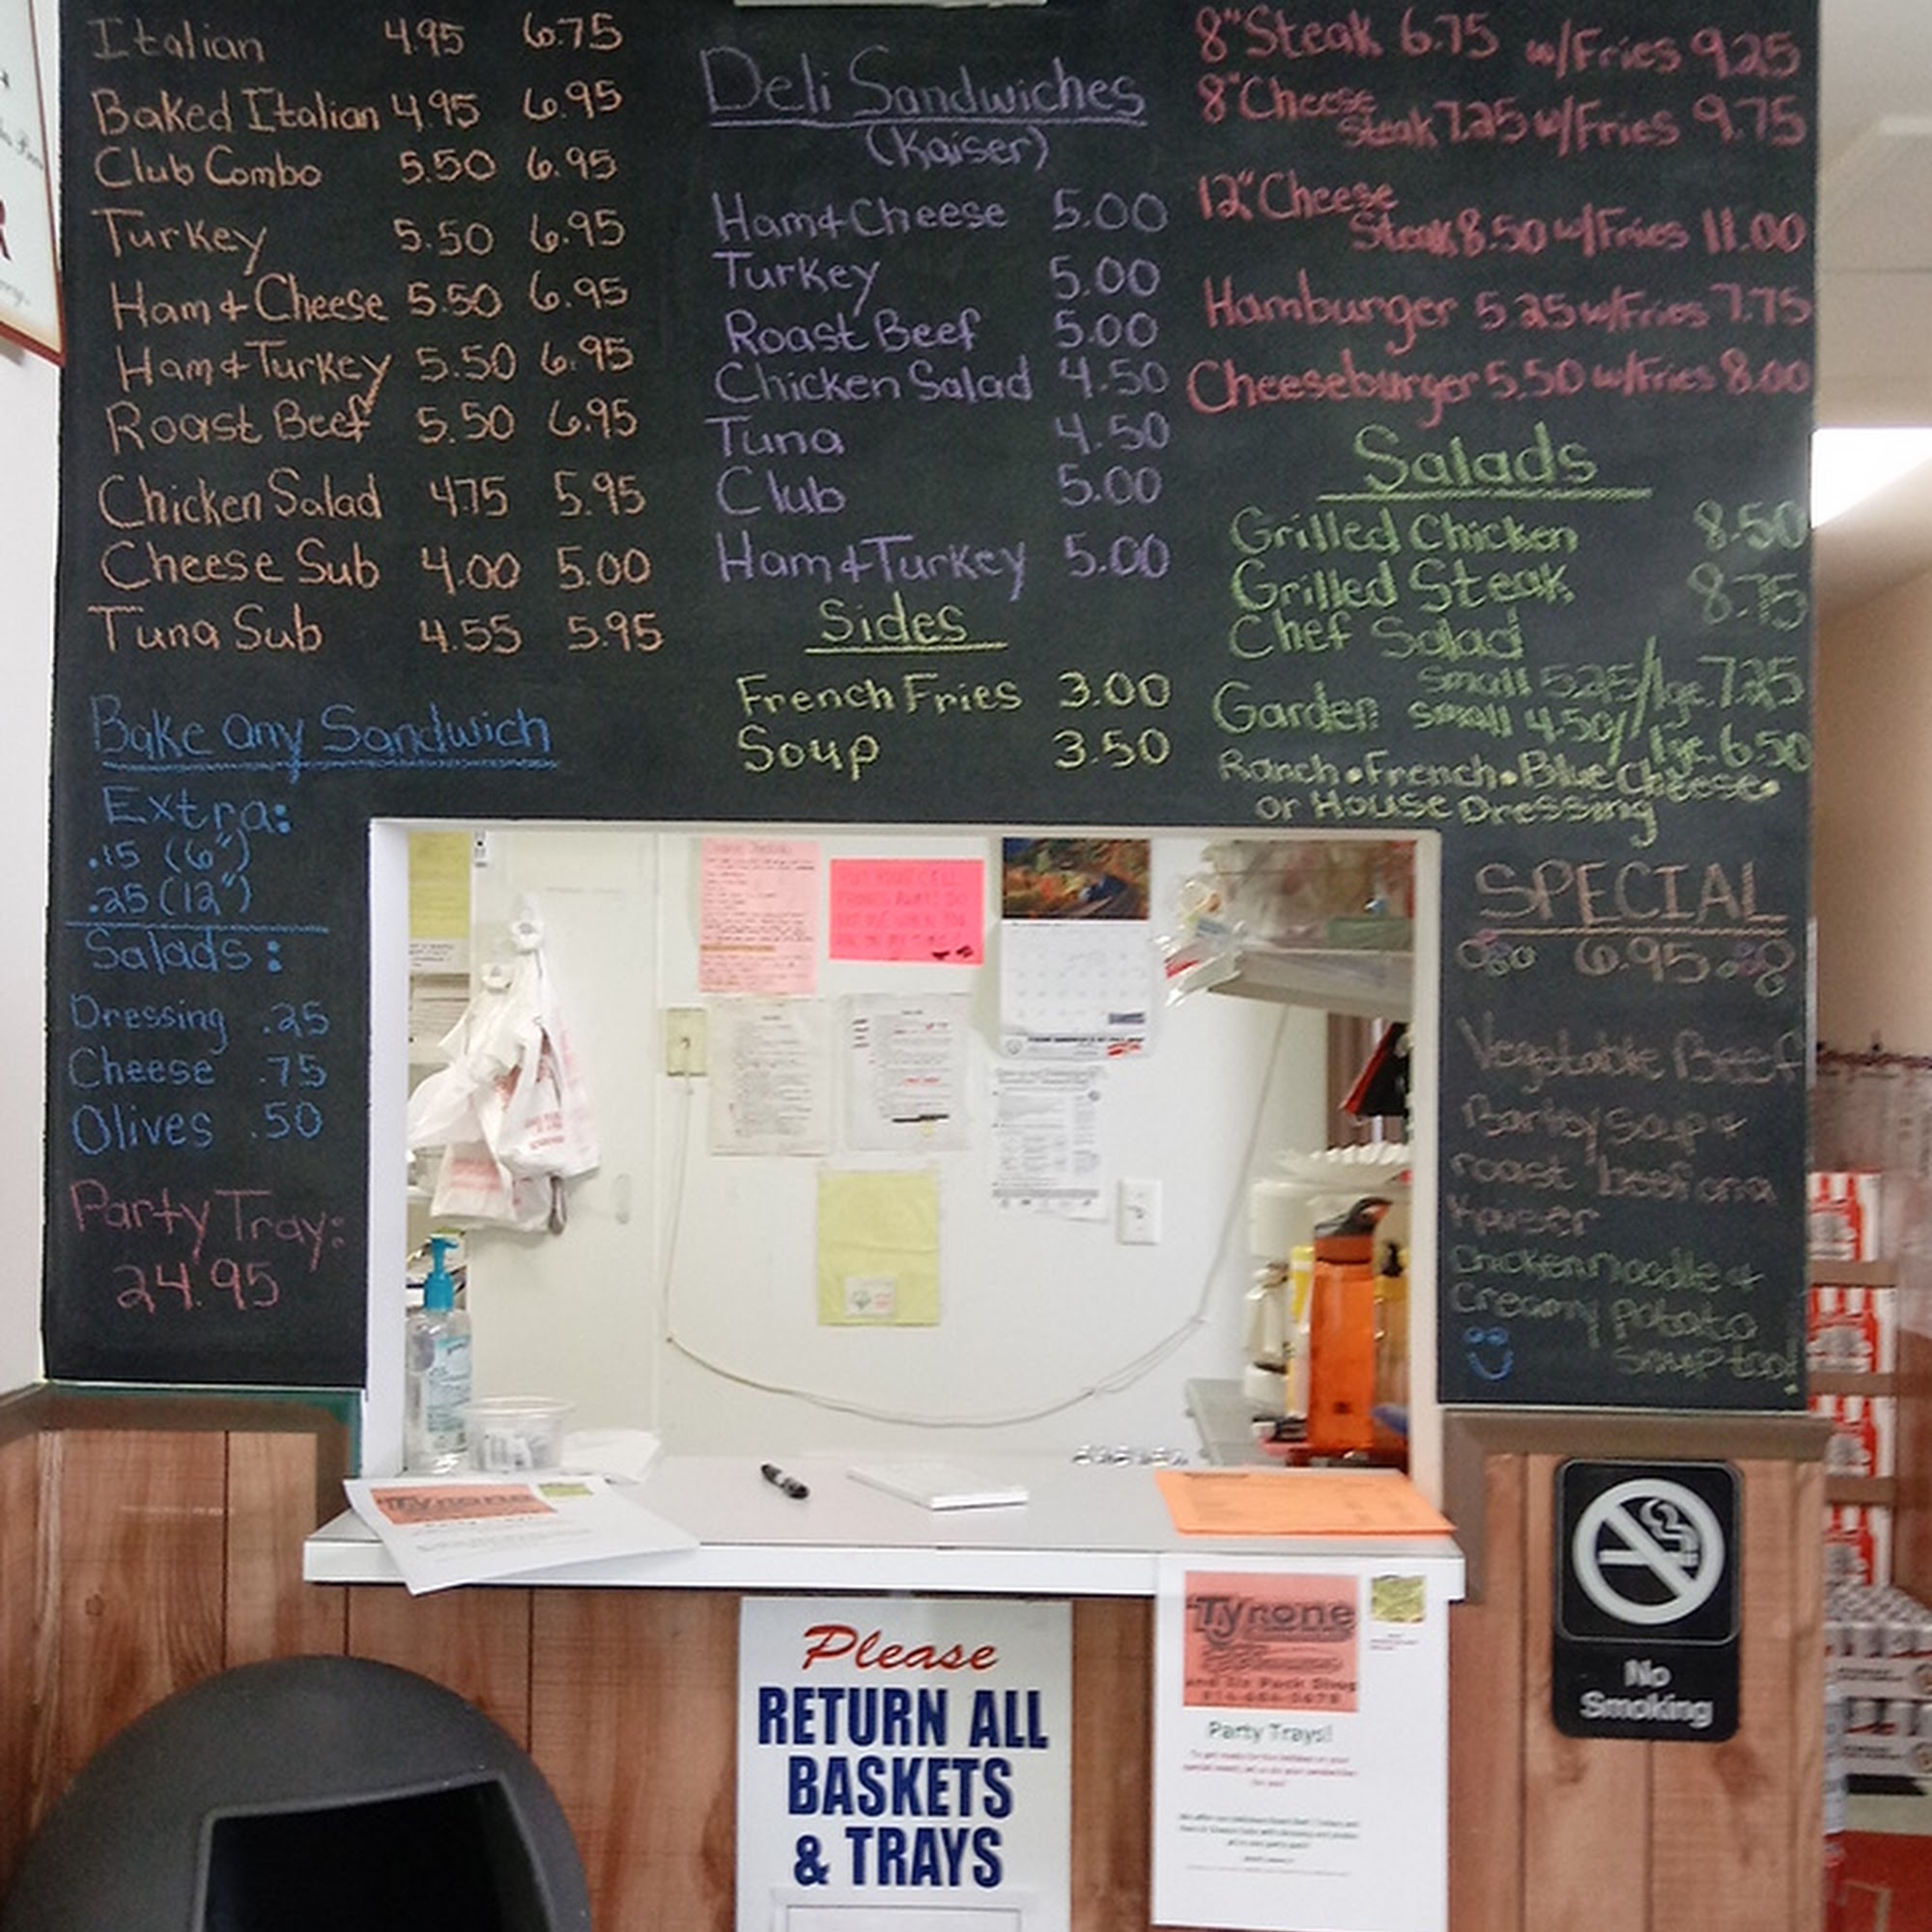 Italian 4.95 6.75
Baked Italian 4.95 6.95
Club Combo 5.50 6.95
Turkey 5.50 6.95
Ham & Cheese 5.50 6.95
Ham & Turkey 5.50 6.95
Roast Beef 5.50 6.95
Chicken Salad 4.75 5.95
Cheese Sub 4.00 5.00
Tuna Sub 4.55 5.95
Bake any Sandwich
Extra:
.15 (6")
.25 (12")
Salads:
Dressing .25
Cheese .75
Olives .50
Party Tray:
24.95
Deli Sandwiches
(Kaiser)
Ham & Cheese 5.00
Turkey 5.00
Roast Beef 5.00
Chicken Salad 4.50
Tuna 4.50
Club 5.00
Ham & Turkey 5.00
Sides
French Fries 3.00
Soup 3.50
8" Steak 6.75 w/Fries 9.25
8" Cheese
Steak 7.25 w/Fries 9.75
12" Cheese
Steak 8.50 w/Fries 11.00
Hamburger 5.25 w/Fries 7.75
Cheeseburger 5.50 w/Fries 8.00
Salads
Grilled Chicken 8.50
Grilled Steak 8.75
Chef Salad
small 5.25/lge. 7.25
Garden small 4.50/lge. 6.50
Ranch • French • Blue Cheese •
or House Dressing
SPECIAL
6.95
Vegetable Beef
Barley Soup &
roast beef on a
Kaiser
Chicken noodle &
Creamy potato
soup too!
Tyrone
Please
RETURN ALL
BASKETS
& TRAYS
Tyrone
and Six Pack Shop
Party Trays!
No
Smoking